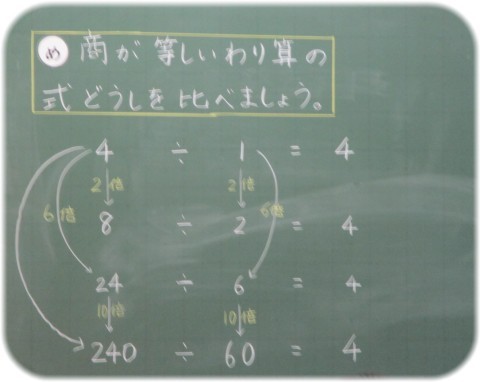 め 商が等しいわり算の
式どうしを比べましょう。
4 ÷ 1 = 4
2倍 2倍
8 ÷ 2 = 4
6倍 6倍
24 ÷ 6 = 4
10倍 10倍
240 ÷ 60 = 4